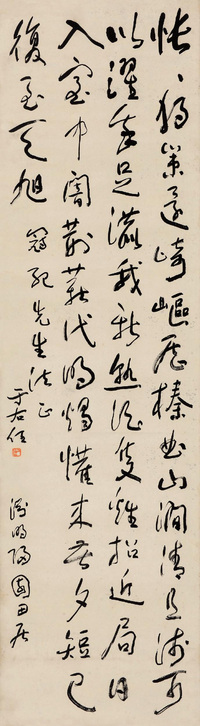 悵〻獨策還崎嶇歷榛曲山澗清且淺可
以濯吾足漉我新熟酒隻雞招近局日
入室中闇荊薪代明燭懽來苦夕短已
復至天旭
先生法正
于右任
淵明歸園田居